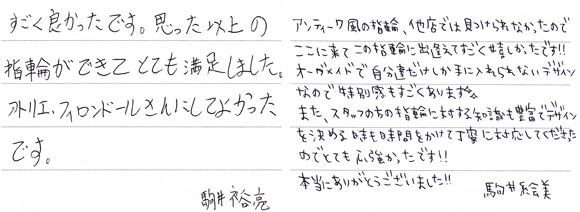 すごく良かったです。思った以上の
指輪ができてとても満足しました。
アトリエ・フィロンドールさんにしてよかった
です。
駒井 裕亮
アンティーク風の指輪、他店では見つけられなかったので
ここに来てこの指輪に出逢えてすごく嬉しかったです!!
オーダーメイドで自分達だけしか手に入れられないデザイン
なので特別感もすごくあります。
また、スタッフの方の指輪に対する知識も豊富でデザイン
を決める時も時間をかけて丁寧に対応してくださった
のでとても心強かったです!!
本当にありがとうございました!!
駒井 絵美